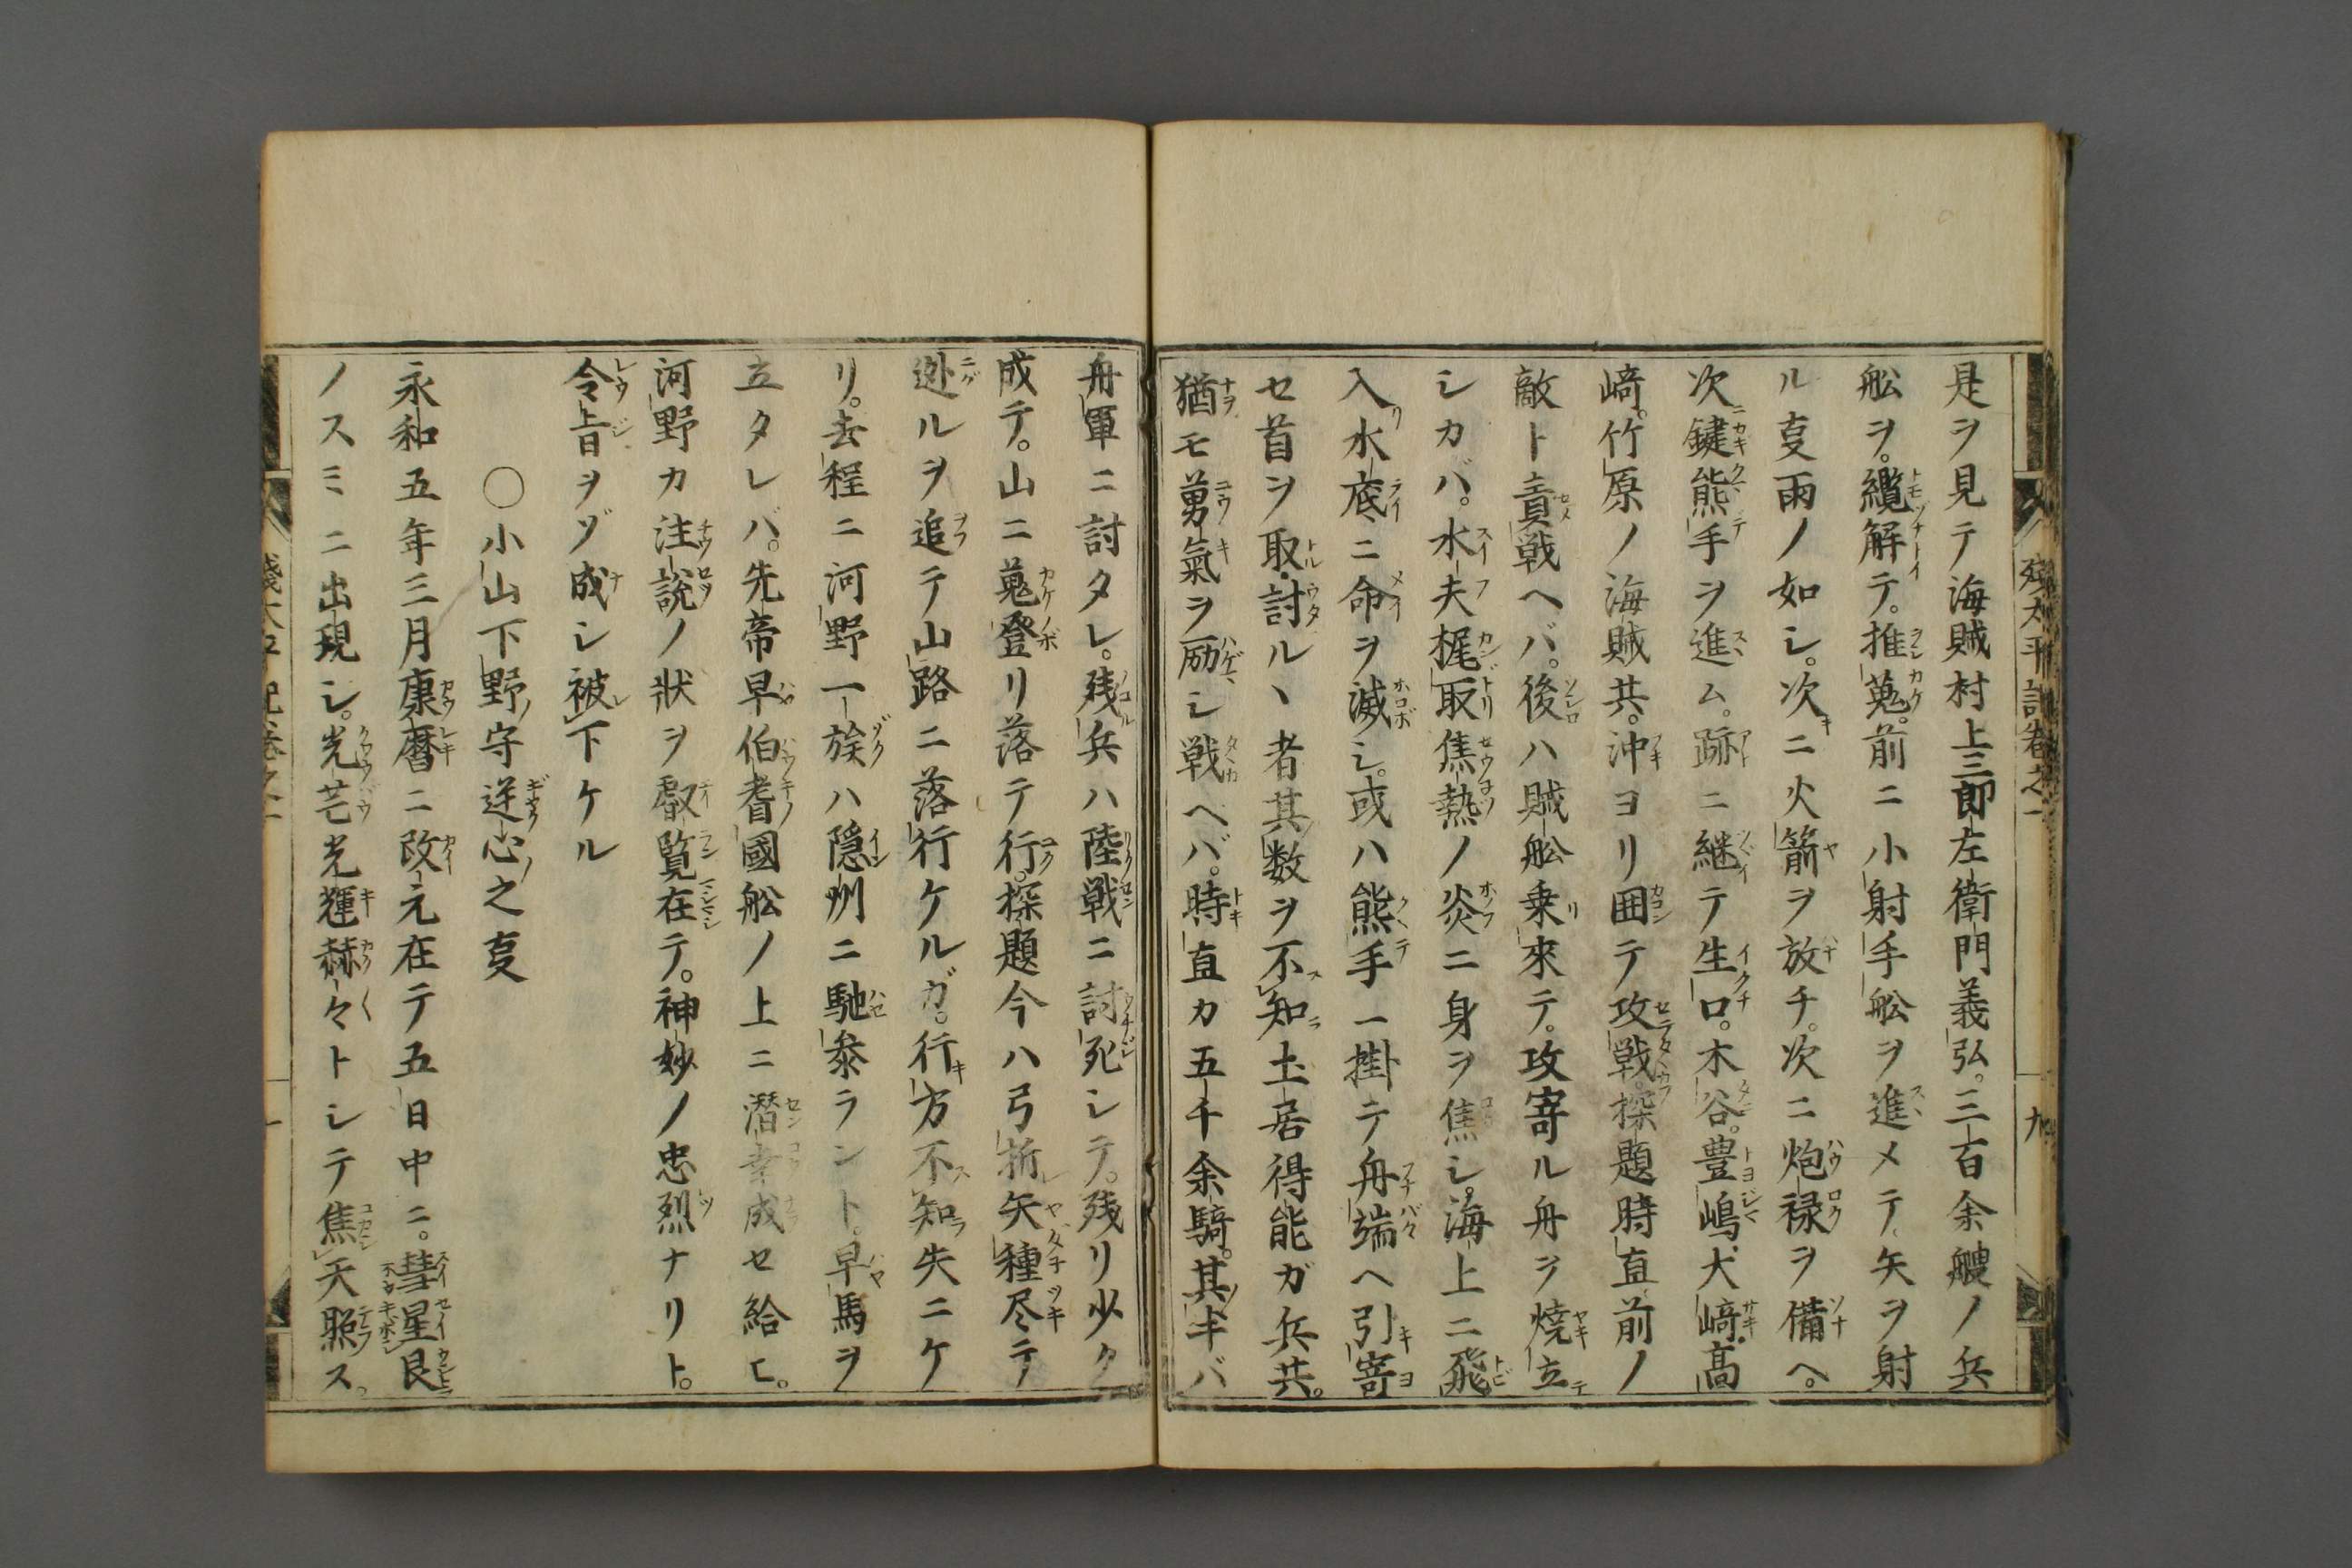 是ヲ見テ海賊村上三郎左衛門義弘。三百余艘ノ兵
舩ヲ。纜解テ。推蒐。前ニ小射手舩ヲ進メテ矢ヲ射
ル叓雨ノ如シ。次ニ火箭ヲ放チ。次ニ炮禄ヲ備ヘ。
次鍵熊手ヲ進ム。跡ニ継テ生口。木谷。豊嶋。犬﨑。髙
﨑。竹原ノ海賊共。沖ヨリ囲テ攻戦。探題時直前ノ
敵ト責戦ヘバ。後ハ賊舩乗來テ。攻寄ル舟ヲ焼立
シカバ。水夫梶取焦熱ノ炎ニ身ヲ焦シ。海上ニ飛
入水底ニ命ヲ滅シ。或ハ熊手ニ掛テ舟端ヘ引寄
セ首ヲ取。討ルヽ者其数ヲ不知土居得能ガ兵共。
猶モ勇氣ヲ励シ戦ヘバ。時直カ五千余騎。其半バ
舟軍ニ討タレ。残兵ハ陸戦ニ討死シテ。残リ少ク
成テ。山ニ蒐登リ落テ行。探題今ハ弓折矢種尽テ
迯ルヲ追テ山路ニ落行ケルガ。行方不知失ニケ
リ。去程ニ河野一族ハ隠州ニ馳参ラント。早馬ヲ
立タレバ。先帝早伯耆國舩ノ上ニ潜幸成セ給ヒ。
河野カ注説ノ狀ヲ叡覧在テ。神妙ノ忠烈ナリト。
令旨ヲゾ成シ被下ケル
〇小山下野守逆心之叓
永和五年三月康暦ニ改元在テ五日中ニ。彗星艮
ノスミニ出現シ。光芒光輝赫々トシテ焦天照ス。
残太平記巻之一
九